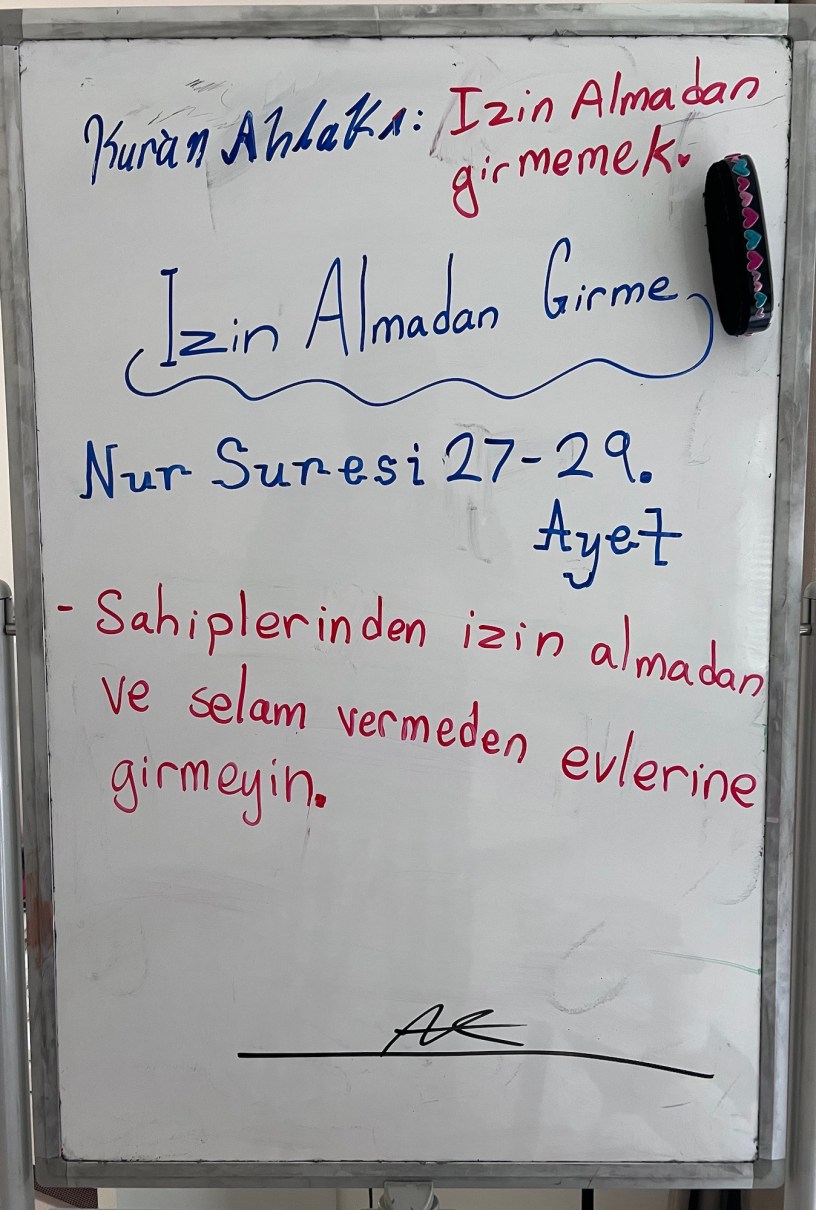 Kuran Ahlakı: Izin Almadan
girmemek.
Izin Almadan Girme
Nur Suresi 27-29.
Ayet
- Sahiplerinden izin almadan
ve selam vermeden evlerine
girmeyin.